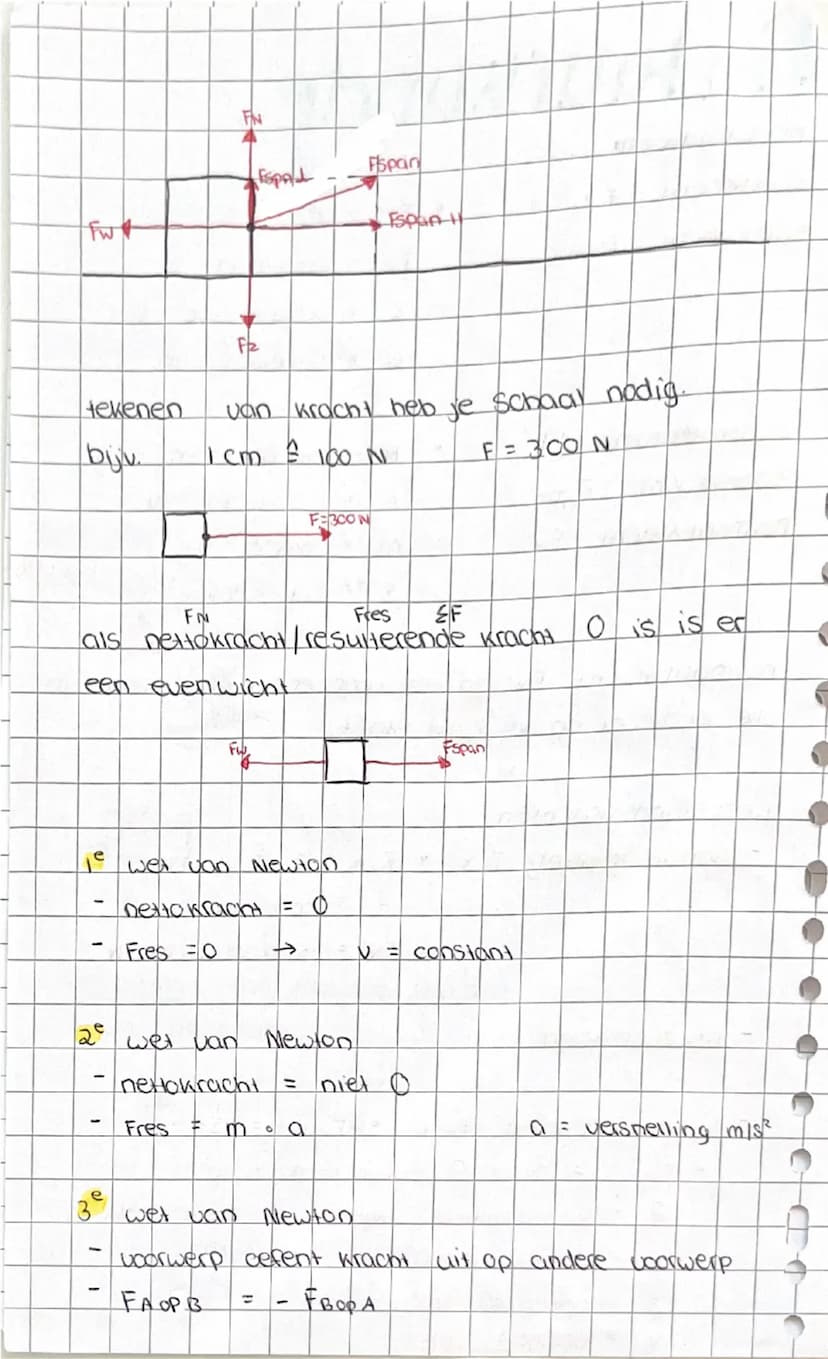 FN
Fspan⊥ Fspan
Fw Fspan //
Fz
tekenen van kracht heb je schaal nodig.
bijv. 1 cm ≙ 100 N F = 300 N
F=300 N
FN Fres ΣF
als nettokracht/resulterende kracht 0 is is er
een evenwicht
Fw Fspan
1e wet van Newton
- nettokracht = 0
- Fres = 0 → v = constant
2e wet van Newton
- nettokracht = niet 0
- Fres = m · a a = versnelling m/s²
3e wet van Newton
- voorwerp oefent kracht uit op andere voorwerp
- FA op B = - FB op A